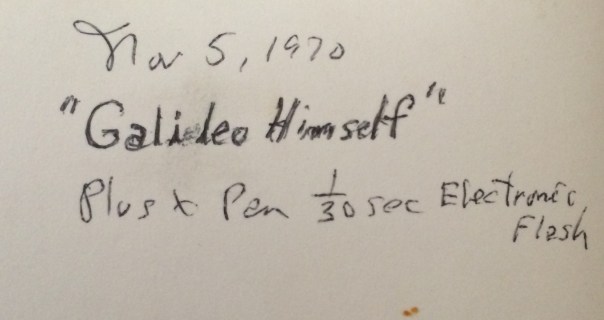 Nov 5, 1970
"Galileo Himself"
Plus X Pan 1/30 sec Electronic
Flash